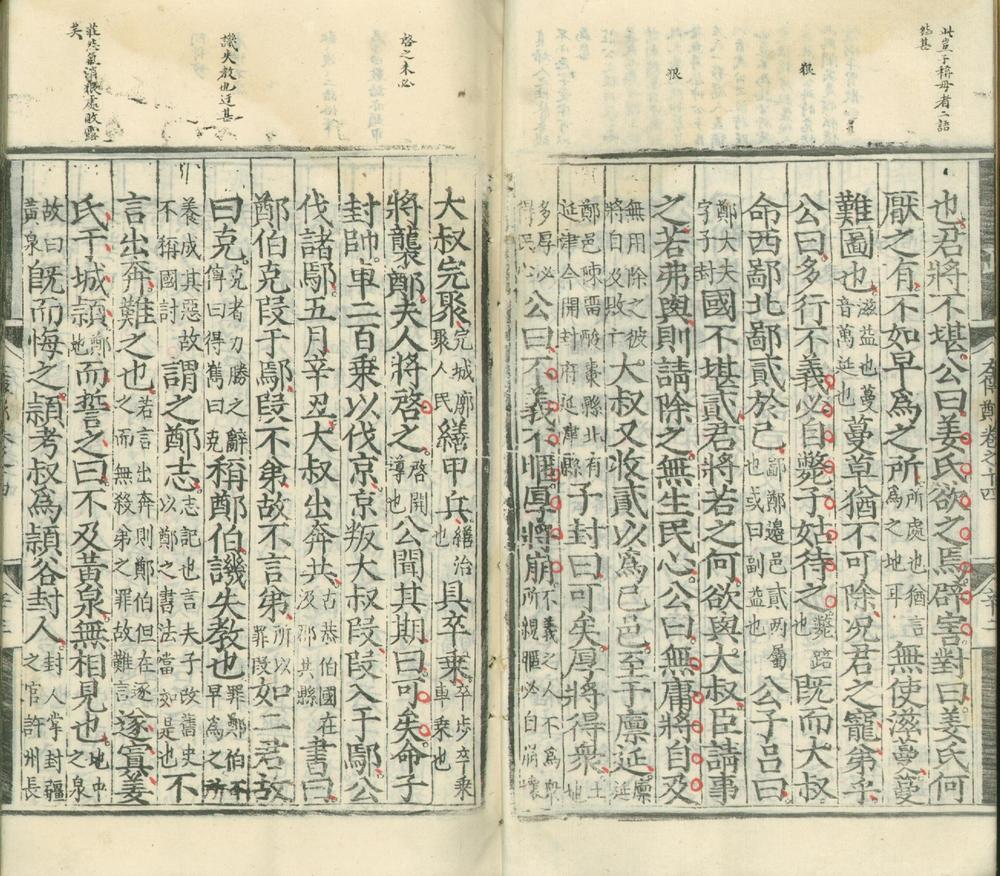 此豈子稱母者二語
狠
狠
也君將不堪公曰姜氏欲之焉辟害對曰姜氏何
厭之有不如早爲之所所處也猶言爲之地耳無使滋蔓蔓
難圖也滋益也蔓音萬延也蔓草猶不可除况君之寵弟乎
公曰多行不義必自斃子姑待之斃踣也既而大叔
命西鄙北鄙貳於己鄙鄭邊邑貳兩屬也或曰副益也公子吕曰
鄭大夫字子封國不堪貳君將若之何欲與大叔臣請事
之若弗與則請除之無生民心公曰無庸將自及
無用除之彼將自及敗亡大叔又收貳以爲己邑至于廩延廩延
鄭邑陳留酸棗縣北有延津今開封府延津縣子封曰可矣厚將得衆土地
多厚必得民心公曰不義不暱厚將崩不義之人不爲衆所親暱必自崩壞
啓之未必
譏失教也逗甚
莊忿氣消狠處收露
矣
大叔完聚完城廓聚人民繕甲兵繕治也具卒乘卒步卒乘車乘也
將襲鄭夫人將啓之啓開導也公聞其期曰可矣命子
封帥車二百乘以伐京京叛大叔段段入于鄢公
伐諸鄢五月辛丑大叔出奔共古恭伯國在汲郡共縣書曰
鄭伯克段于鄢段不弟故不言弟所以罪段如二君故
曰克克者力勝之辭傳曰得雋曰克稱鄭伯譏失教也罪鄭伯不早爲之所
養成其惡故不稱國討謂之鄭志志記也言夫子改舊史以鄭之書法當如是也不
言出奔難之也若言出奔則鄭伯但在逐之而無殺弟之罪故難言遂寘姜
氏于城潁鄭地而誓之曰不及黃泉無相見也地中之泉
故曰黃泉既而悔之潁考叔爲潁谷封人封人掌封疆之官許州長